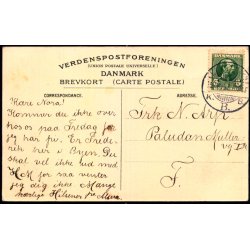 VERDENSPOSTFORENINGEN
(UNION POSTALE UNIVERSELLE)
DANMARK
BREVKORT (CARTE POSTALE)
KORRESPONDANCE.
ADRESSE.
Kære Nora!
Kommer du ikke over
hos os paa Fredag for
jeg har fri. Er Frede-
rik her i Byen. Du
skal vel ikke ud med
H.M for saa venter
jeg dig ikke Mange
kærlige Hilsener fra
Frk N. Arp
Paludan Müller
vej
F.